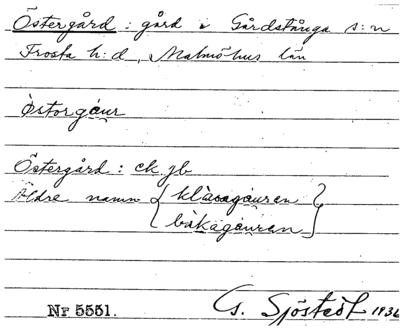 Östergård : gård i Gårdstånga s:n
Frosta h:d, Malmöhus län
östorgáur
Östergård : ek. jb
Äldre namn { klàcagáuren }
bàkagáuren
Nr 5551. G. Sjöstedt 1936